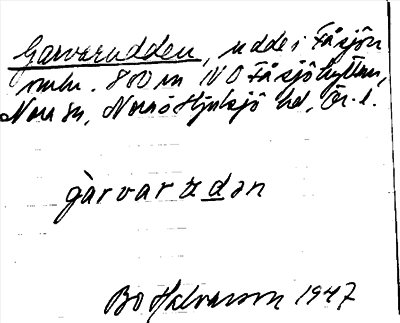 Garvarudden, udde i Fåsjön
omkr. 800 m NO Fåsjöhyttan,
Nora sn, Nora o Hjulsjö hd, Ör. l.
gàrvar ɯdən
Bo Halvarson 1947